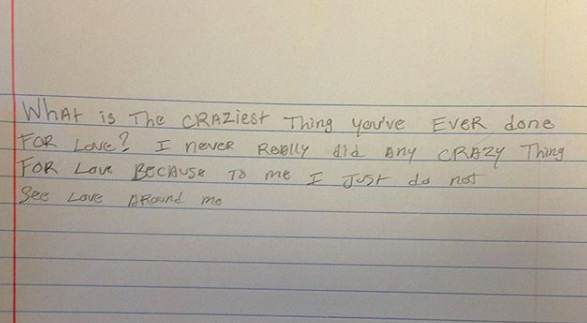 What is The CRAZiest Thing you've EveR done
FOR Love? I never Really did Any CRAZY Thing
FOR Love BECAUSE To me I JUST do not
See Love ARound me